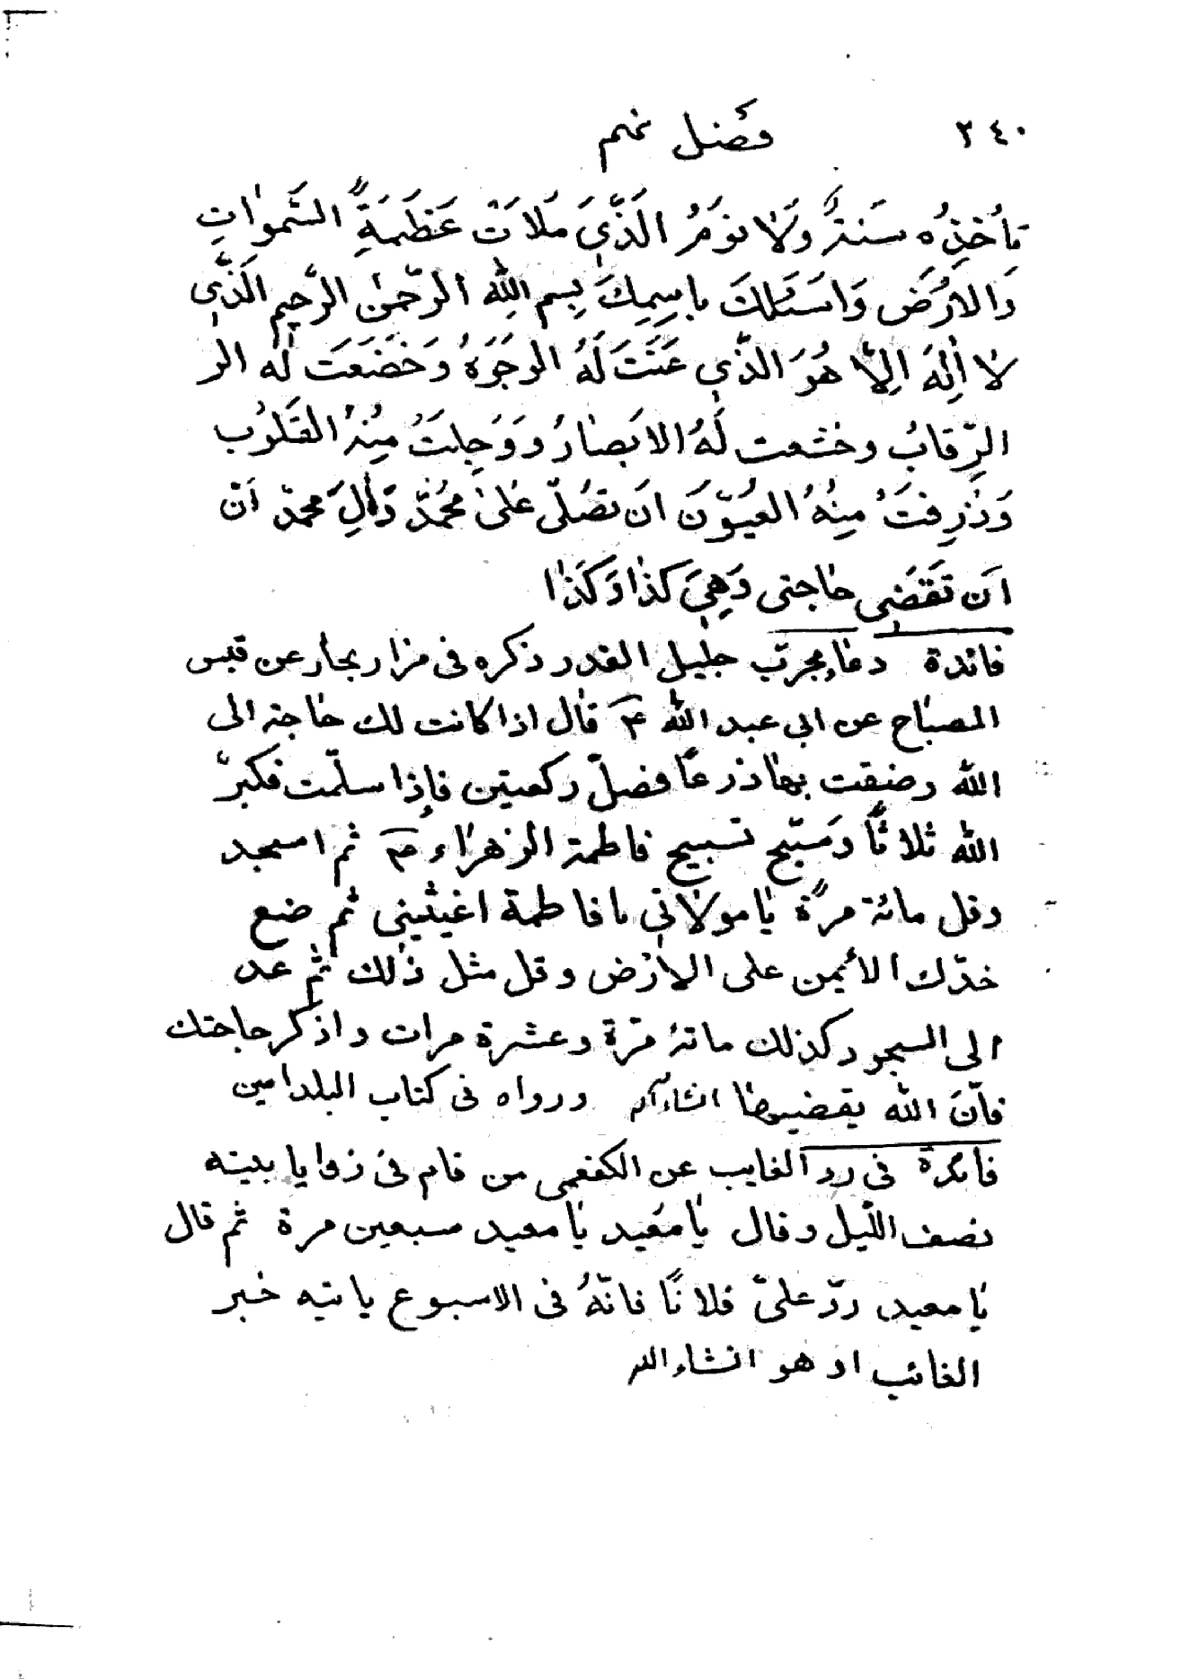 ٢٤٠ فصل نهم
تأخذه سنة ولا نوم الذي ملات عظمة السموات
والارض واسئلك باسمك بسم الله الرحمن الرحيم الذي
لا اله الا هو الذي عنت له الوجوه وخضعت له الر
الرقاب وخشعت له الابصار ووجلت منه القلوب
وذرفت منه العيون ان تصلى على محمد وال محمد ان
ان تقضى حاجتى وهي كذا وكذا
فائدة دعاء مجرب جليل القدر ذكره فى مزار بحار عن قبس
المصباح عن ابى عبد الله ع قال اذا كانت لك حاجة الى
الله وضقت بها ذرعًا فصلّ ركعتين فإذا سلّمت فكبّر
الله ثلاثًا وسبّح تسبيح فاطمة الزهراء ع ثم اسجد
وقل مائة مرّة يا مولاتي يا فاطمة اغيثيني ثم ضع
خدّك الأيمن على الارض وقل مثل ذلك ثم عد
الى السجود كذلك مائة مرّة وعشرة مرات واذكر حاجتك
فانّ الله يقضيها انشاء الله ورواه فى كتاب البلد امين
فائدة فى رد الغايب عن الكفعمى من قام فى زوايا بيته
نصف اللّيل وقال يا معيد يا معيد سبعين مرة ثم قال
يا معيد ردّ علىّ فلانًا فانّهُ فى الاسبوع ياتيه خبر
الغائب او هو انشاء الله